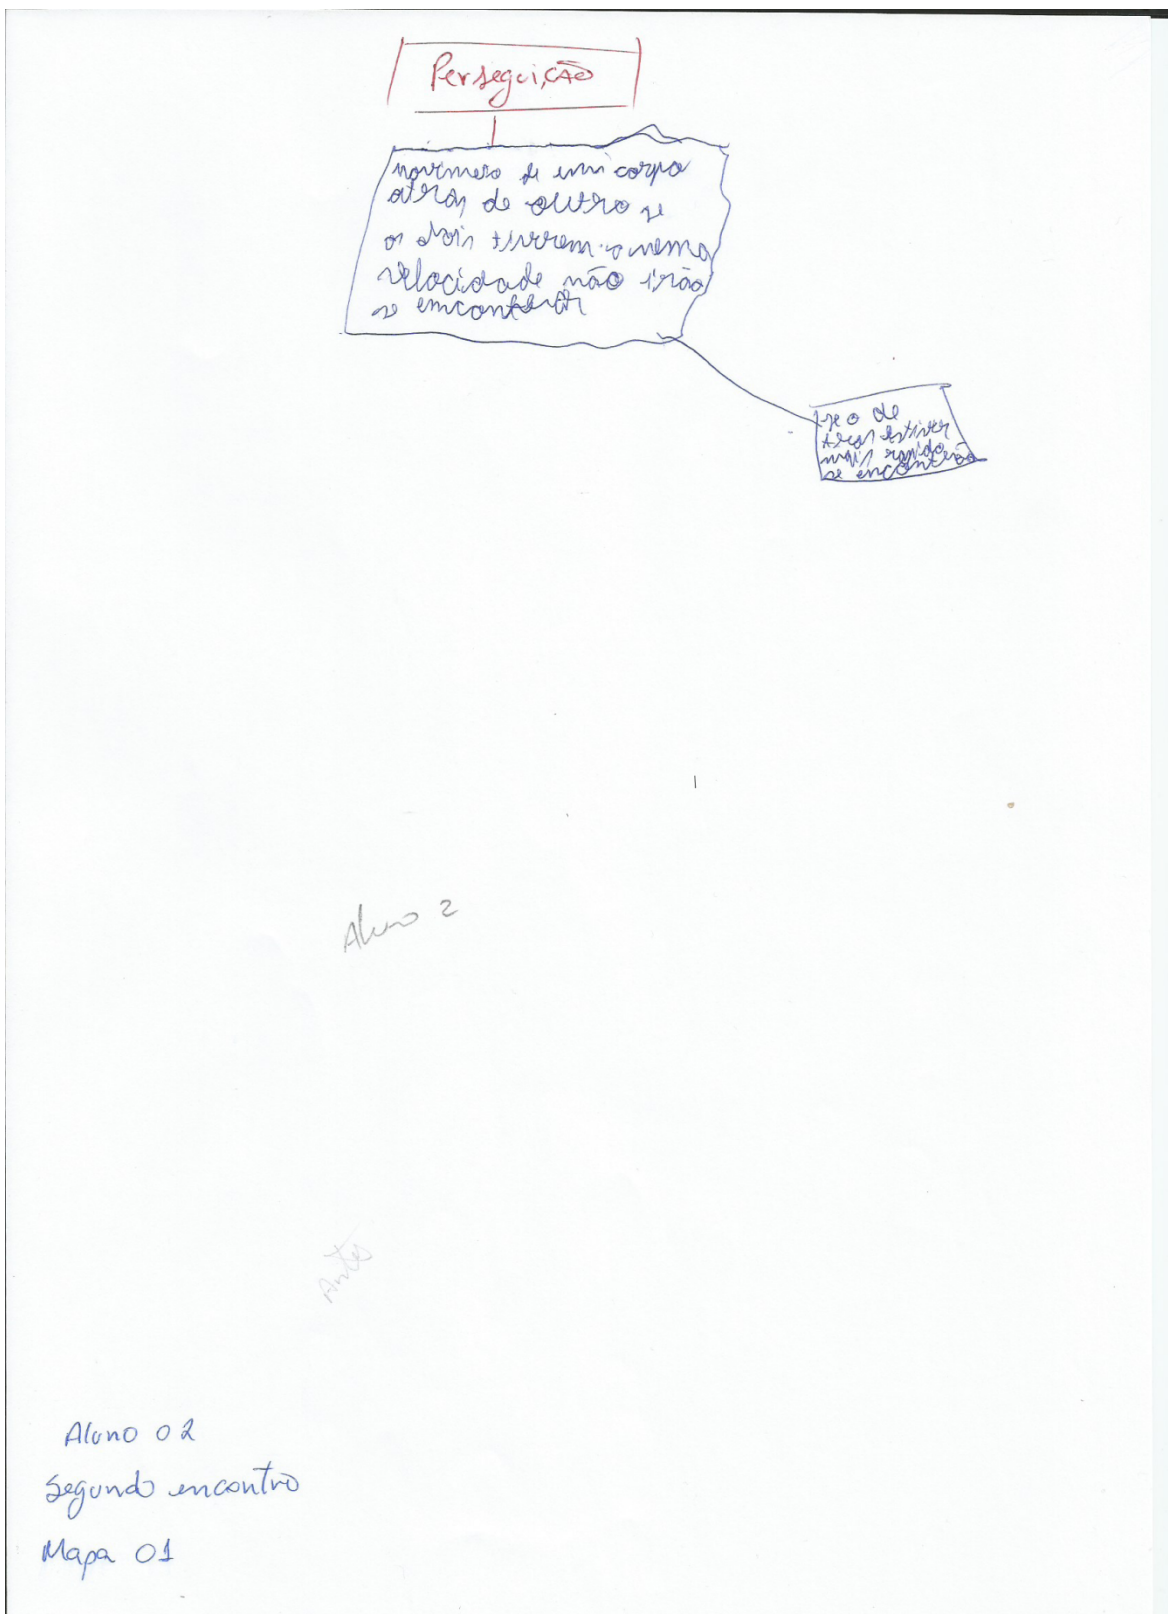 Perseguição
movimeto de um corpo
atrás de outro se
os dois tiverem a mema
velocidade não irão
se emcontrar
se o de
tras estiver
mais rapido
se encontrão
Aluno 2
Antes
Aluno 02
Segundo encontro
Mapa 01